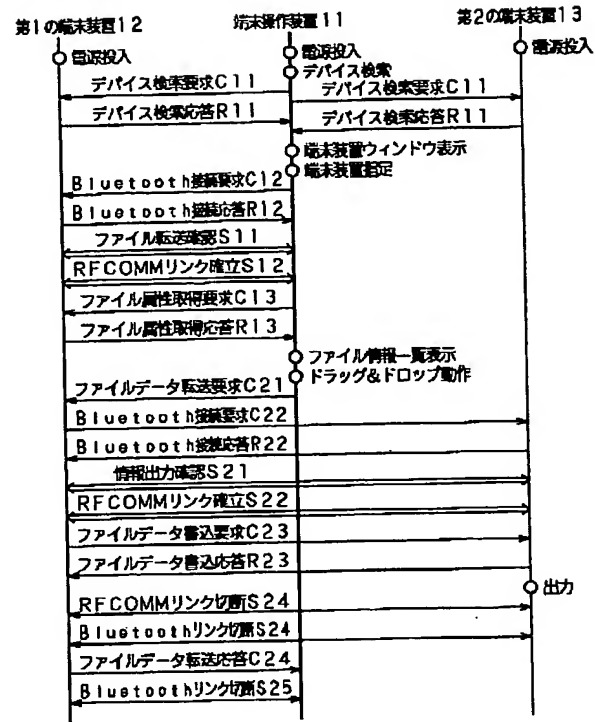 第1の端末装置12
端末操作装置11
第2の端末装置13
電源投入
電源投入
電源投入
デバイス検索
デバイス検索要求C11
デバイス検索要求C11
デバイス検索応答R11
デバイス検索応答R11
端末装置ウィンドウ表示
端末装置指定
Bluetooth接続要求C12
Bluetooth接続応答R12
ファイル転送確認S11
RFCOMMリンク確立S12
ファイル属性取得要求C13
ファイル属性取得応答R13
ファイル情報一覧表示
ドラッグ&ドロップ動作
ファイルデータ転送要求C21
Bluetooth接続要求C22
Bluetooth接続応答R22
情報出力確認S21
RFCOMMリンク確立S22
ファイルデータ書込要求C23
ファイルデータ書込応答R23
出力
RFCOMMリンク切断S24
Bluetoothリンク切断S24
ファイルデータ転送応答C24
Bluetoothリンク切断S25